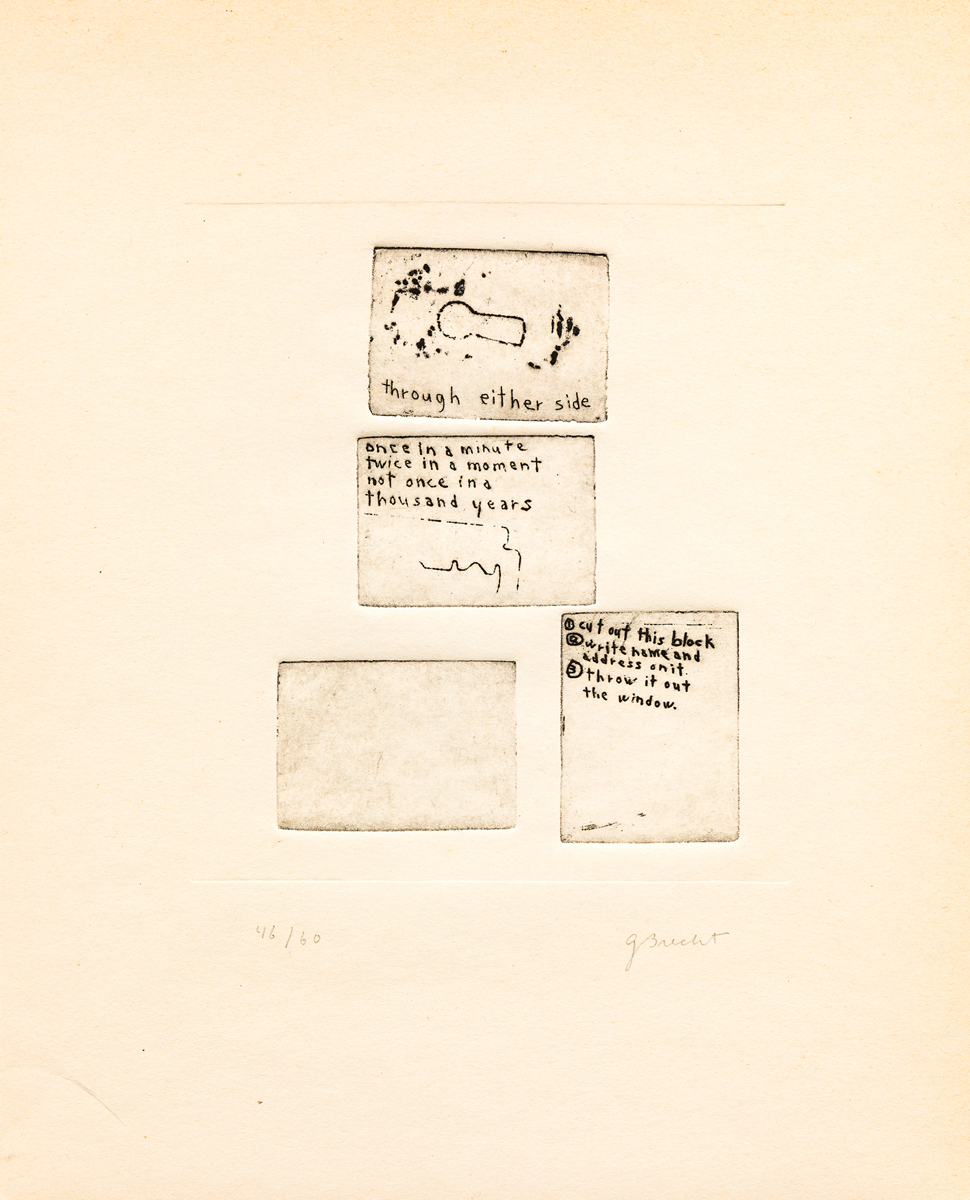 through either side
once in a minute
twice in a moment
not once in a
thousand years
① cut out this block
② write name and
address on it.
③ throw it out
the window.
46/60
gBrecht